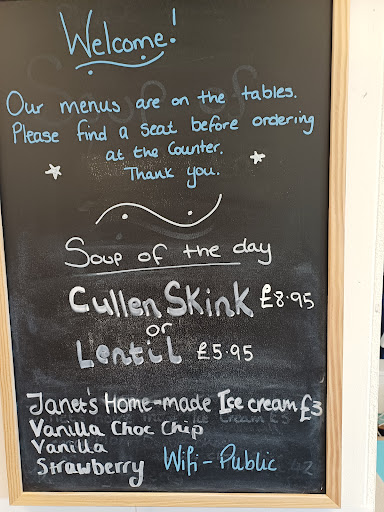 Welcome!
Our menus are on the tables.
Please find a seat before ordering
at the counter.
Thank you.
Soup of the day
Cullen Skink £8.95
or
Lentil £5.95
Janet's Home-made Ice cream £3
Vanilla Choc Chip
Vanilla
Strawberry Wifi - Public